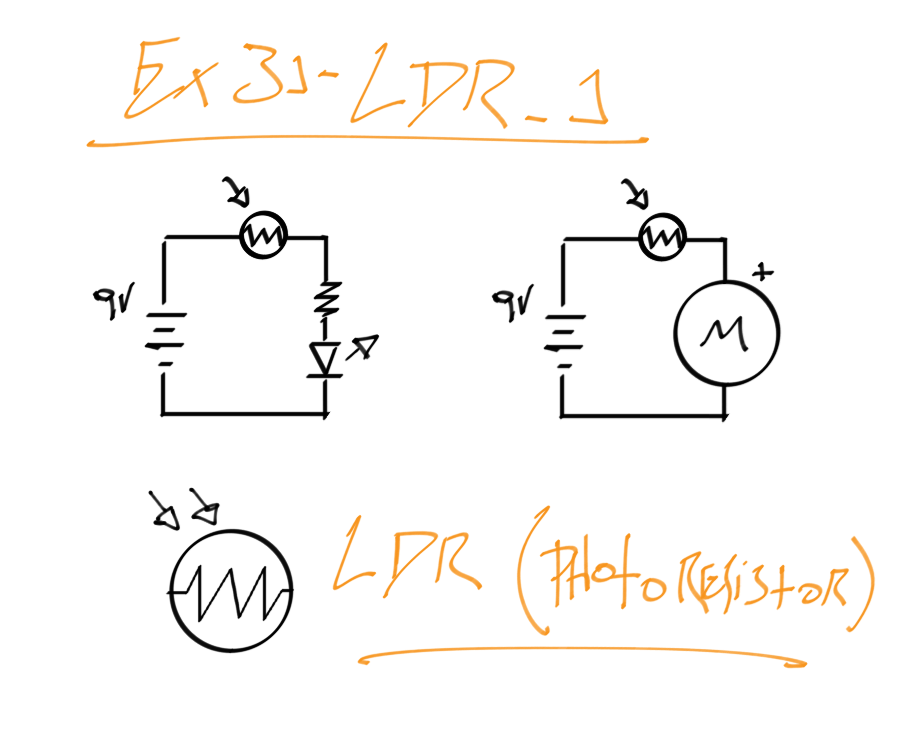 Ex 31-LDR_1
9V 9V
+
M
LDR (PHotoREsistoR)